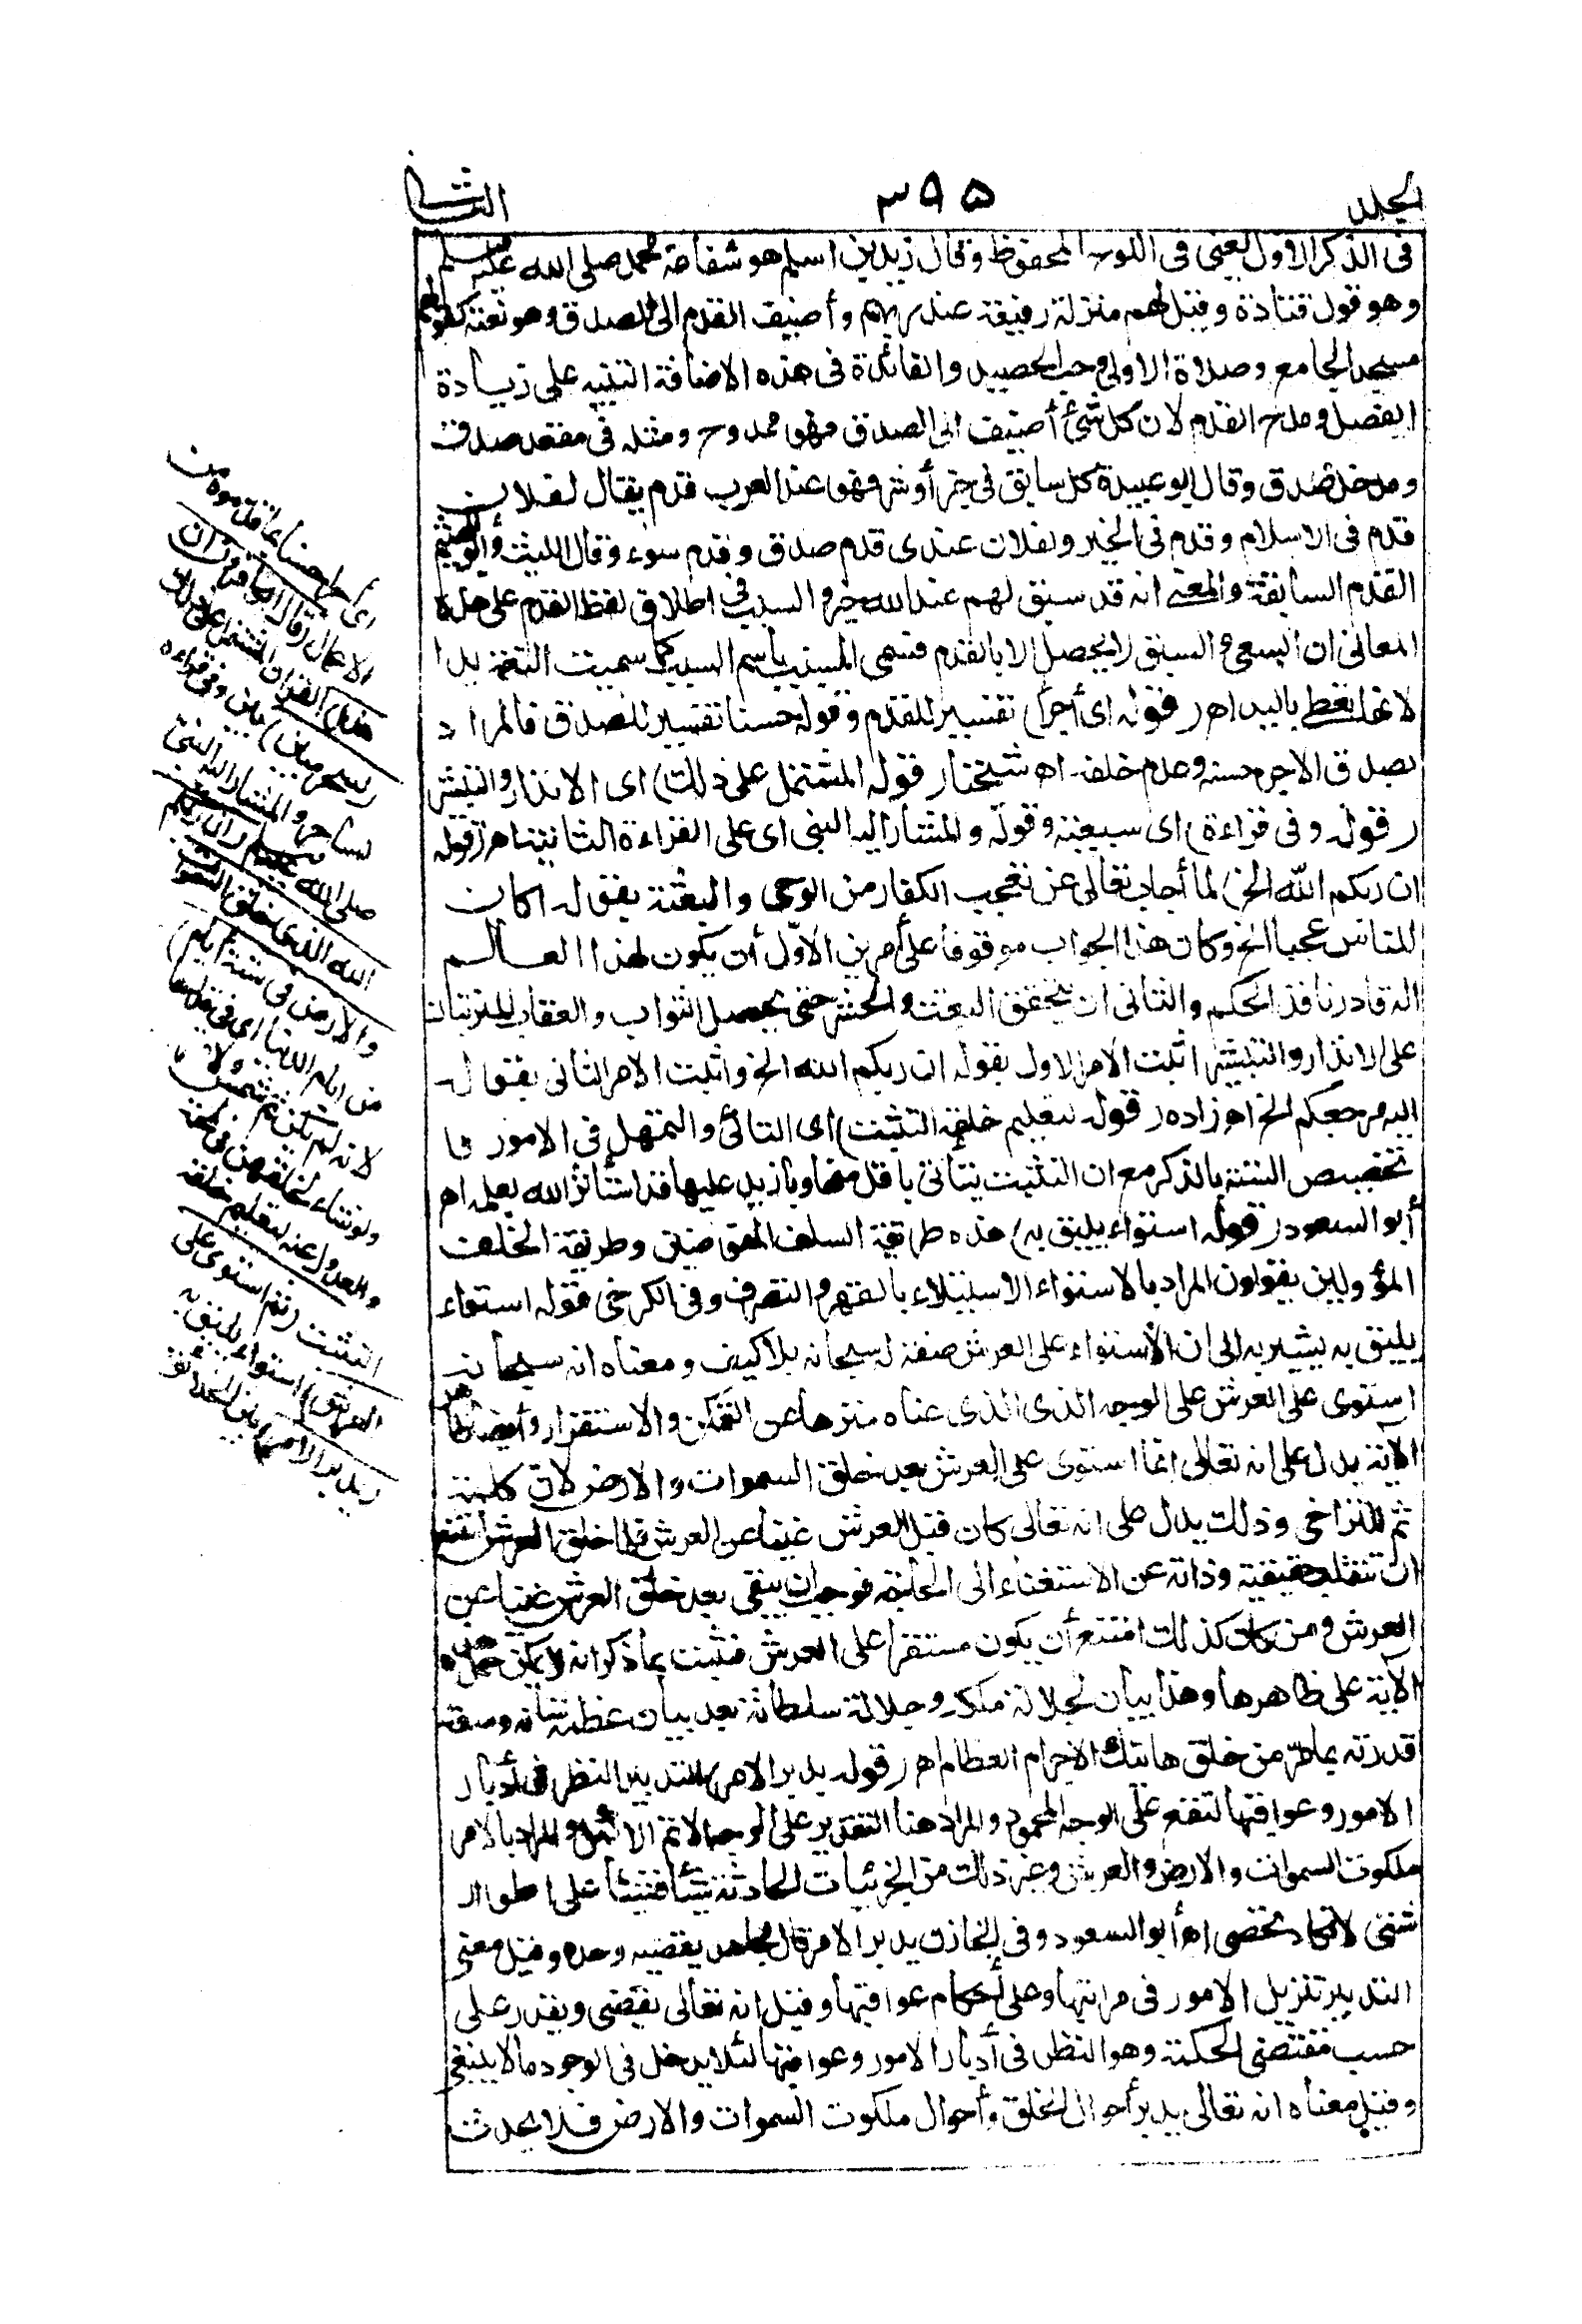 الجلد ٣٩٥ الثانى
فى الذكر الاول يعنى فى اللوح المحفوظ وقال زيد بن اسلم هو شفاعة محمد صلى الله عليه وسلم
وهو قول قتادة وقيل لهم منزلة رفيعة عند ربهم وأضيف القدم الى الصدق وهو نعته كقولهم
مسجد الجامع وصلاة الاولى وحب الحصيد والفائدة فى هذه الاضافة التنبيه على زيادة
الفضل ومدح القدم لان كل شئ أضيف الى الصدق فهو ممدوح ومثله فى مقعد صدق
ومدخل صدق وقال ابو عبيدة كل سابق فى خير أو شر فهو عند العرب قدم يقال لفلان
قدم فى الاسلام وقدم فى الخير ولفلان عندى قدم صدق وقدم سوء وقال الليث وأبو الهيثم
القدم السابقة والمعنى انه قد سبق لهم عند الله خير والسبب فى اطلاق لفظ القدم على هذه
المعانى ان السعى و السبق لا يحصل الا بالقدم فسمى المسبب باسم السبب كما سميت النعمة يدا
لانها تعطى باليد اهـ (قوله اى أجرا) تفسير للقدم وقوله حسنا تفسير للصدق فالمراد
بصدق الاجر حسنه وعدم خلفه اهـ شيخنا (قوله المشتمل على ذلك) اى الانذار والتبشير
(قوله وفى قراءة) اى سبعية وقوله والمشار اليه النبى اى على القراءة الثانية اهـ (قوله
ان ربكم الله الخ) لما أجاب تعالى عن تعجب الكفار من الوحى والبعثة بقوله اكان
للناس عجبا الخ وكان هذا الجواب موقوفا على أمرين الاوّل أن يكون لهذا العالم
اله قادر نافذ الحكم والثانى ان يتحقق البعث والحشر حتى يحصل الثواب والعقاب المترتبان
على الانذار والتبشير اثبت الامر الاول بقوله ان ربكم الله الخ واثبت الامر الثانى بقوله
اليه مرجعكم الخ اهـ زاده (قوله لتعليم خلقه التثبت) اى التأنى والتمهل فى الامور فما
تخصيص الستة بالذكر مع ان التثبت يتأتى باقل منها وبازيد عليها فقد استأثر الله بعلمه اهـ
أبو السعود (قوله استواء يليق به) هذه طريقة السلف المفوضين وطريقة الخلف
المؤولين يقولون المراد بالاستواء الاستيلاء بالقهر والتصرف وفى الكرخى قوله استواء
يليق به يشير به الى ان الاستواء على العرش صفة له سبحانه بلا كيف ومعناه انه سبحانه
استوى على العرش على الوجه الذى عناه منزها عن التمكن والاستقرار وأيضا ظاهر
الآية يدل على انه تعالى انما استوى على العرش بعد خلق السموات والارض لان كلمة
ثم للتراخى وذلك يدل على انه تعالى كان قبل العرش غنيا عن العرش فلما خلق العرش امتنع
ان تنقلب حقيقته وذاته عن الاستغناء الى الحاجة فوجب ان يبقى بعد خلق العرش غنيا عن
العرش ومن كان كذلك امتنع أن يكون مستقرا على العرش فثبت بما ذكر انه لا يمكن حمل هذه
الآية على ظاهرها وهذا بيان لجلالة ملكه وجلالة سلطانه بعد بيان عظمة شأنه وسعة
قدرته بما مرّ من خلق هاتيك الاجرام العظام اهـ (قوله يدبر الامر) التدبير النظر فى أدبار
الامور وعواقبها لتقع على الوجه المحمود والمراد هنا التقدير على الوجه الاتم الاكمل والمراد بالامر
ملكوت السموات والارض والعرش وغير ذلك من الجزئيات الحادثة شيأ فشيأ على اطوار
شتى لا تكاد تحصى اهـ أبو السعود وفى الخازن يدبر الامر قال مجاهد يقضيه وحده وقيل معنى
التدبير تنزيل الامور فى مراتبها وعلى أحكام عواقبها وقيل انه تعالى يقضى ويقدر على
حسب مقتضى الحكمة وهو النظر فى أدبار الامور وعواقبها لئلا يدخل فى الوجود ما لا ينبغى
وقيل معناه انه تعالى يدبر أحوال الخلق وأحوال ملكوت السموات والارض فلا يحدث
أى أجرا حسنا بما قدموه من
الاعمال (قال الكافرون ان
هذا) القرآن المشتمل على ذلك
(لسحر مبين) بيّن وفى قراءة
لساحر والمشار اليه النبى
صلى الله عليه وسلم (ان ربكم
الله الذى خلق السموات
والارض فى ستة أيام)
من ايام الدنيا اى فى قدرها
لانه لم يكن ثم شمس ولا قمر
ولو شاء لخلقهن فى لمحة
والعدول عنه لتعليم خلقه
التثبت (ثم استوى على
العرش) استواء يليق به
(يدبر الامر) بين الخلائق